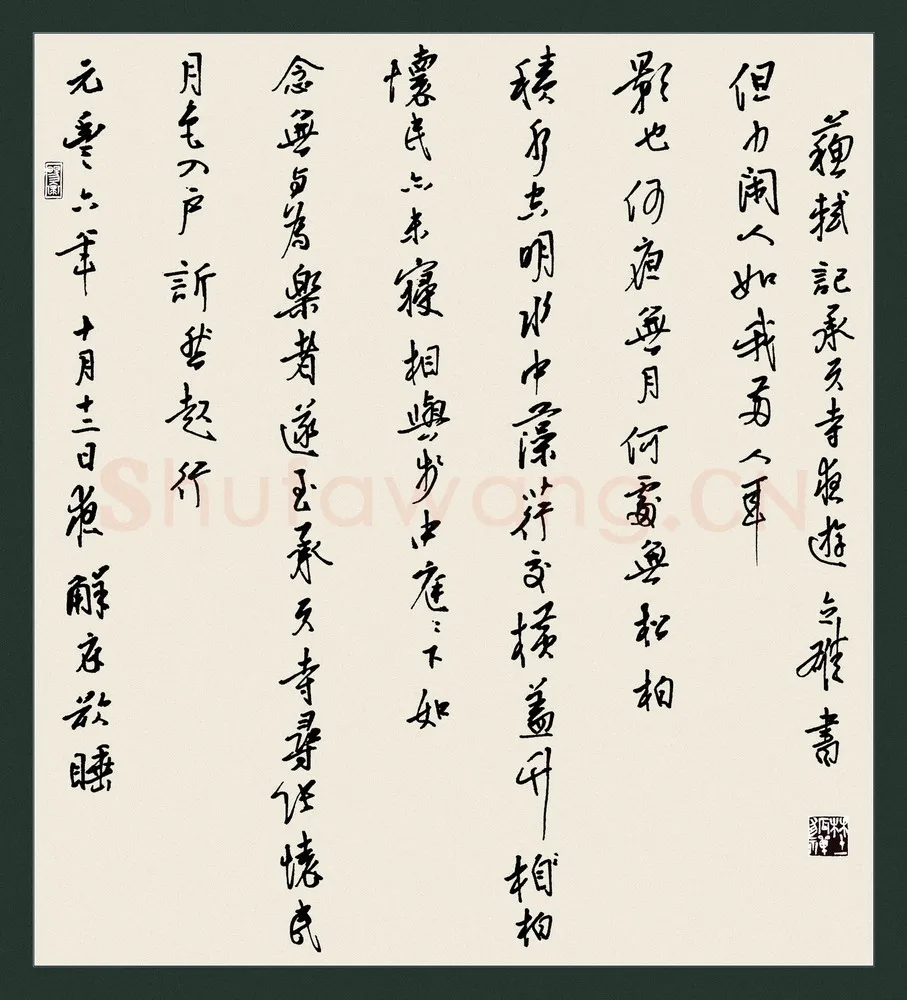 元豐六年十月十二日夜解衣欲睡
月色入戶訢然起行
念無與為樂者遂至承天寺尋張懷民
懷民亦未寢相與步中庭〻下如
積水空明水中藻荇交橫蓋竹相柏
影也何夜無月何處無松柏
但少閑人如我兩人耳
蘇軾記承天寺夜遊 書
Shufawang.CN